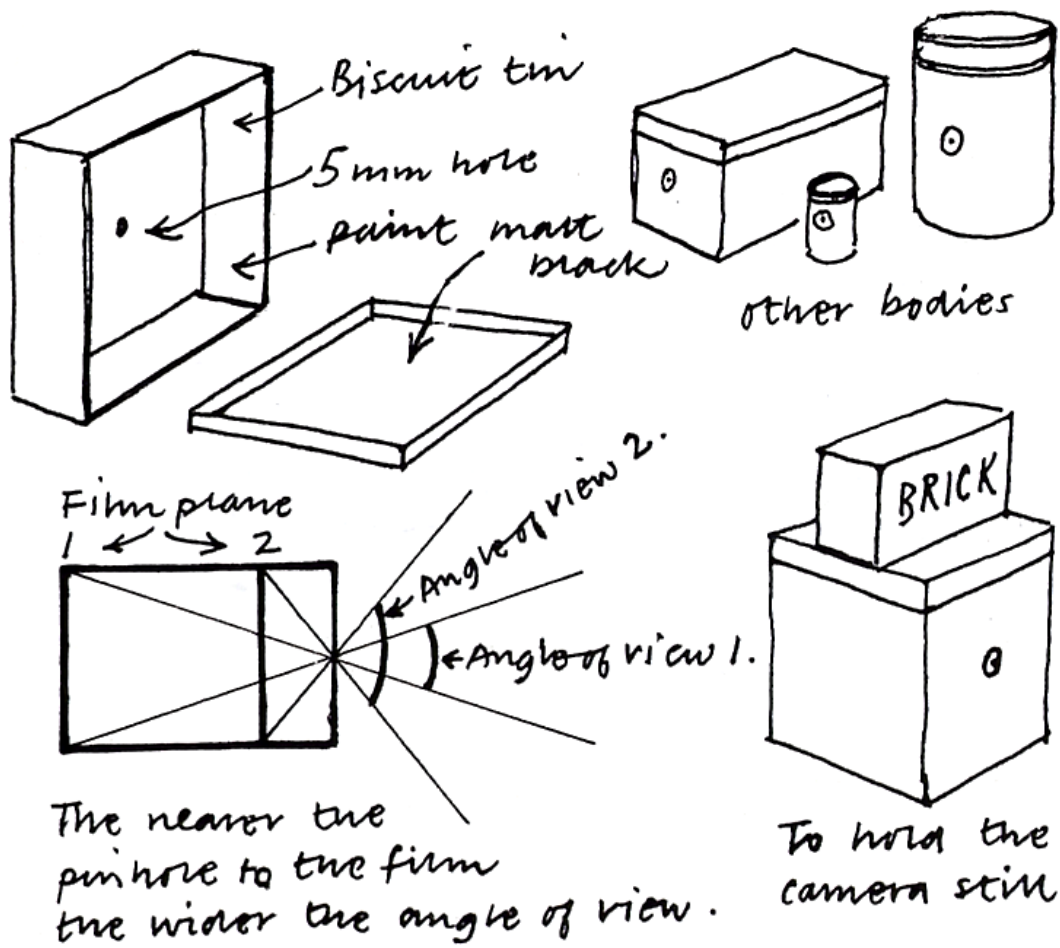 Biscuit tin
5mm hole
paint matt
black
other bodies
Film plane
1 2
Angle of view 2.
Angle of view 1.
BRICK
The nearer the
pinhole to the film
the wider the angle of view.
To hold the
camera still